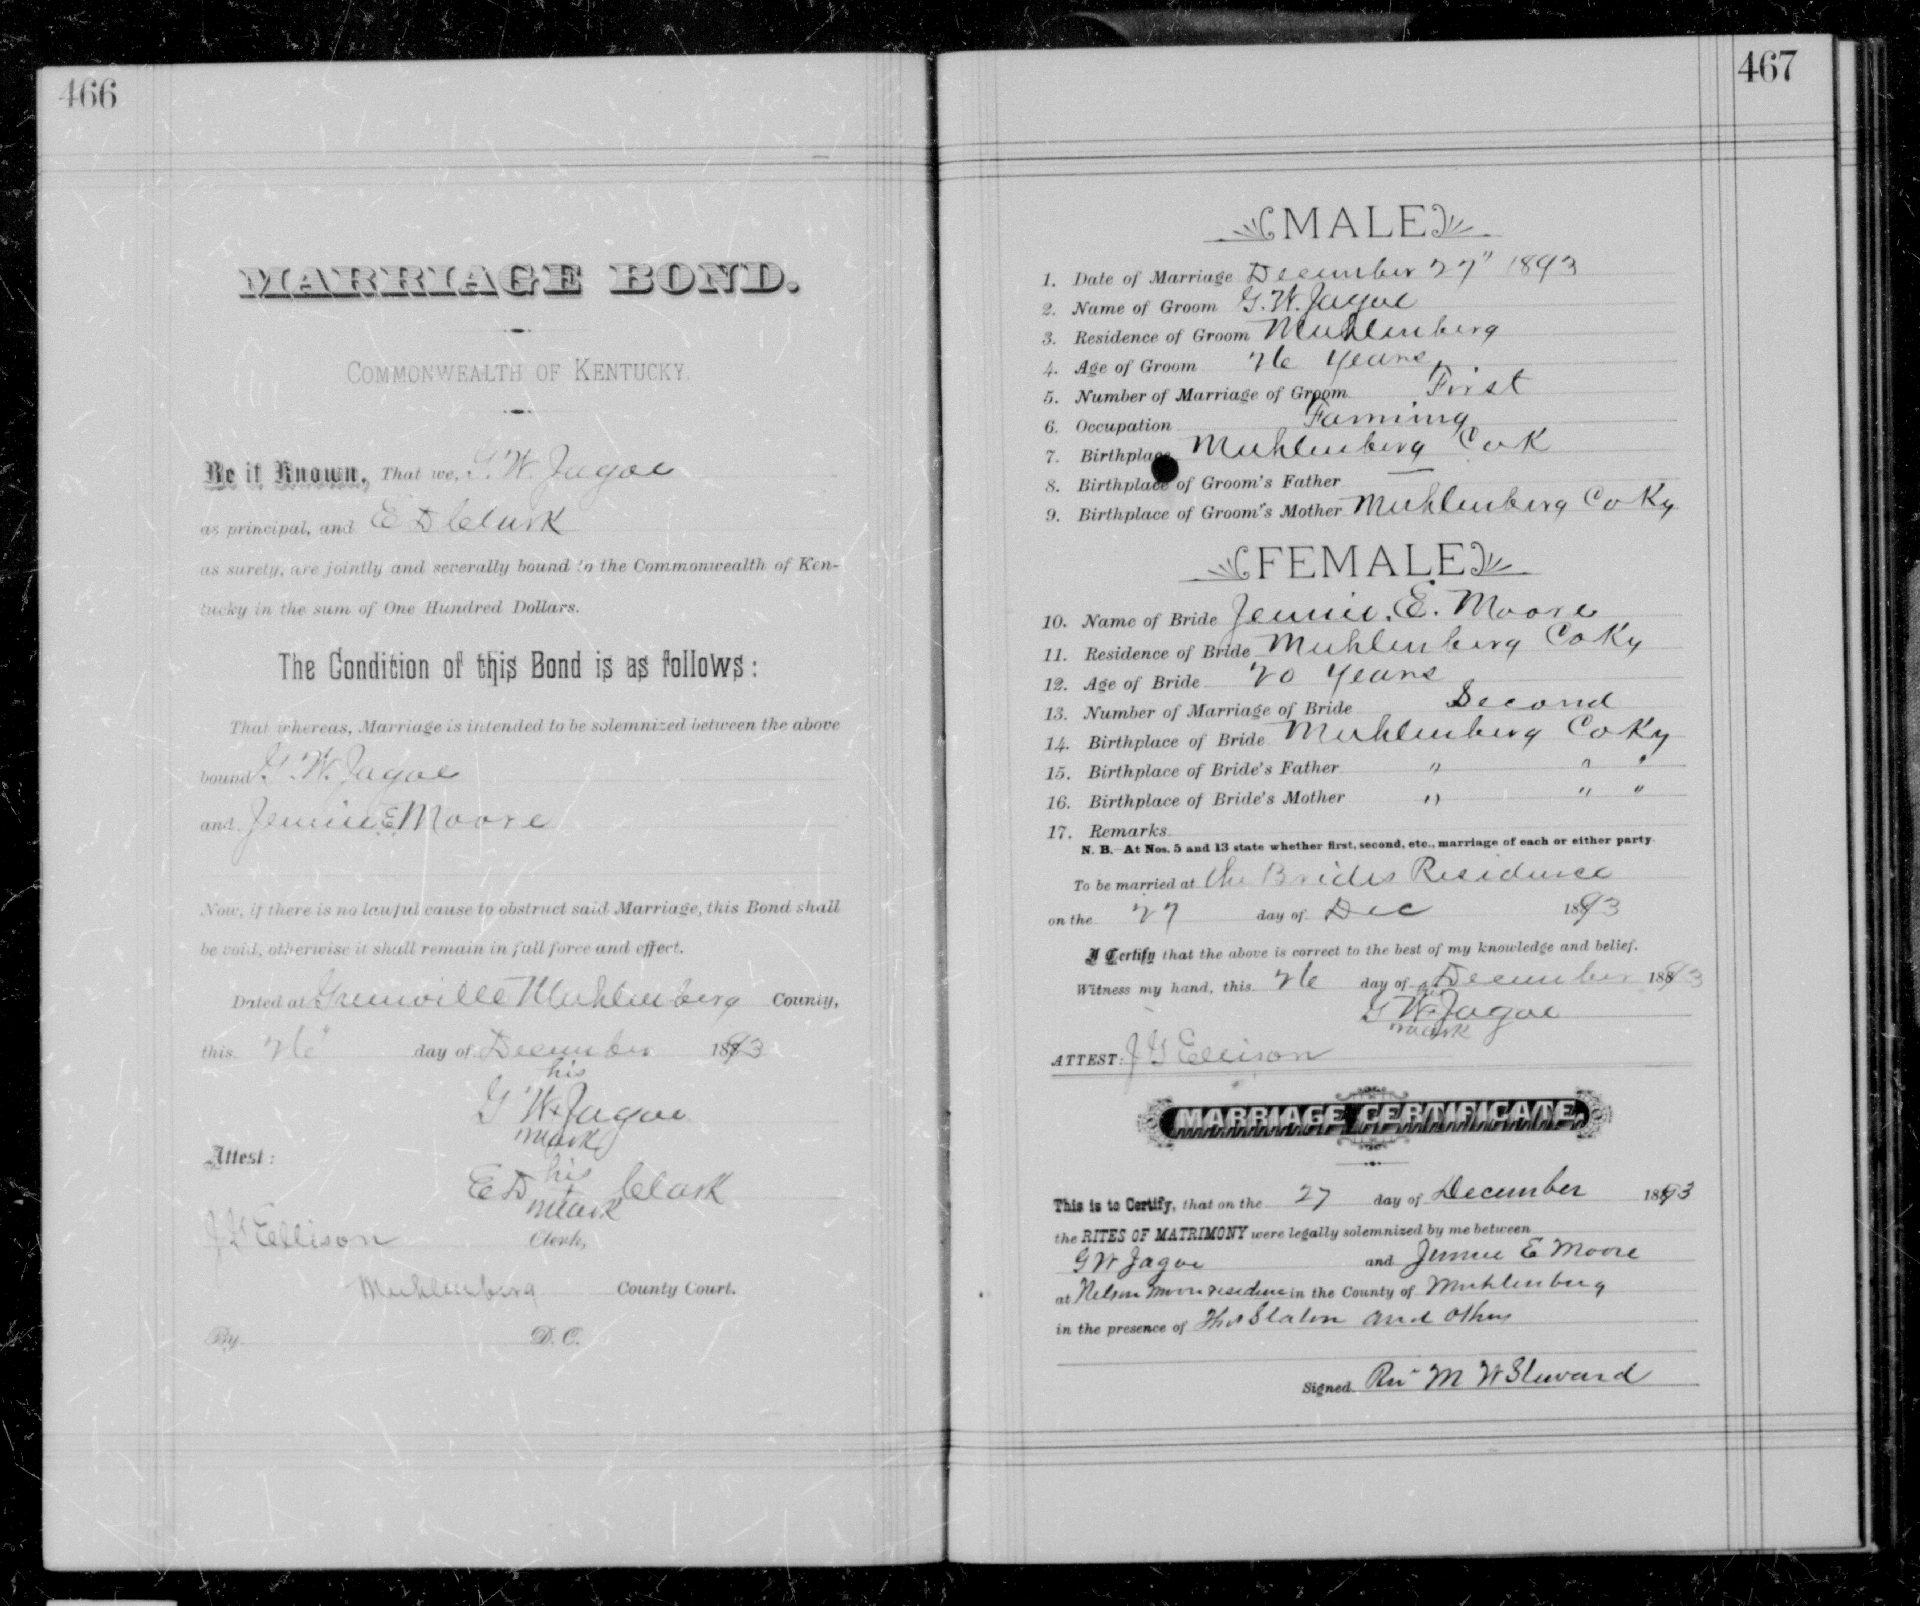 466
MARRIAGE BOND.
COMMONWEALTH OF KENTUCKY.
Be it Known, That we, G. W. Jagoe
as principal, and E D Clark
as surety, are jointly and severally bound to the Commonwealth of Ken-
tucky in the sum of One Hundred Dollars.
The Condition of this Bond is as follows:
That whereas, Marriage is intended to be solemnized between the above
bound G. W. Jagoe
and Jennie E Moore
Now, if there is no lawful cause to obstruct said Marriage, this Bond shall
be void, otherwise it shall remain in full force and effect.
Dated at Greenville Muhlenberg County,
this 26" day of December 1893
his
G W x Jagoe
mark
Attest:
his
E D x Clark
mark
J G Ellison Clerk,
Muhlenberg County Court.
By D. C.
467
MALE
1. Date of Marriage December 27" 1893
2. Name of Groom G. W. Jagoe
3. Residence of Groom Muhlenberg
4. Age of Groom 26 years
5. Number of Marriage of Groom First
6. Occupation Farming
7. Birthplace Muhlenberg Co K
8. Birthplace of Groom's Father —
9. Birthplace of Groom's Mother Muhlenberg Co Ky
FEMALE
10. Name of Bride Jennie. E. Moore
11. Residence of Bride Muhlenberg Co Ky
12. Age of Bride 20 years
13. Number of Marriage of Bride Second
14. Birthplace of Bride Muhlenberg Co Ky
15. Birthplace of Bride's Father " " "
16. Birthplace of Bride's Mother " " "
17. Remarks
N. B.—At Nos. 5 and 13 state whether first, second, etc., marriage of each or either party.
To be married at the Brides Residence
on the 27 day of Dec 1893
I Certify that the above is correct to the best of my knowledge and belief.
Witness my hand, this 26 day of December 1893
his
G W x Jagoe
mark
ATTEST: J G Ellison
MARRIAGE CERTIFICATE.
This is to Certify, that on the 27 day of December 1893
the RITES OF MATRIMONY were legally solemnized by me between
G W Jagoe and Jennie E Moore
at Nelson Moore residence in the County of Muhlenberg
in the presence of Thos Slaton and others
Signed Rev M W Steward